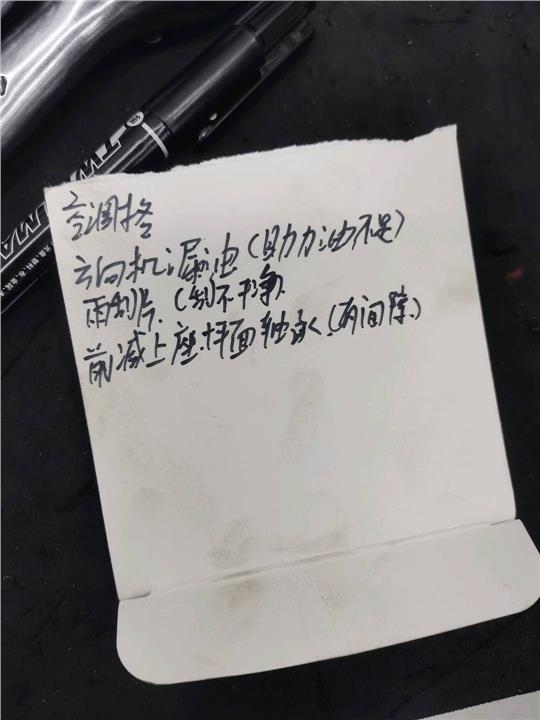 空调格
方向机漏油(助力油不足)
雨刮片.(刮不干净)
前减上座.平面轴承.(有间隙.)